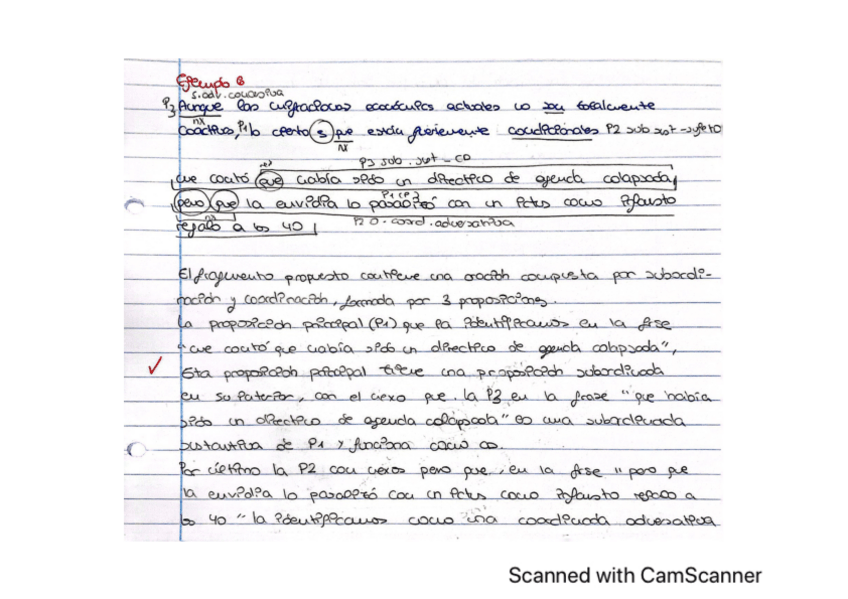 Ejemplo 8
s.adv. concesiva
P3 Aunque las migraciones económicas actuales no son totalmente
nx
coactivas, P1 lo cierto es que están fuertemente condicionadas P2 sub sust - sujeto
nx
P3 sub. sust - CD
me contó que había sido un directivo de agenda colapsada,
P1 (P)
pero que la envidia lo parasitó con un ictus como infausto
nx
regalo a los 40 P2 O. coord. adversativa
El fragmento propuesto contiene una oración compuesta por subordi-
nación y coordinación, formada por 3 proposiciones.
La proposición principal (P1) que la identificamos en la frase
"me contó que había sido un directivo de agenda colapsada",
Esta proposición principal tiene una proposición subordinada
en su interior, con el nexo que. la P3 en la frase "que había
sido un directivo de agenda colapsada" es una subordinada
sustantiva de P1 y funciona como CD.
Por último la P2 con nexos pero que, en la frase "pero que
la envidia lo parasitó con un ictus como infausto regalo a
los 40" la identificamos como una coordinada adversativa
Scanned with CamScanner